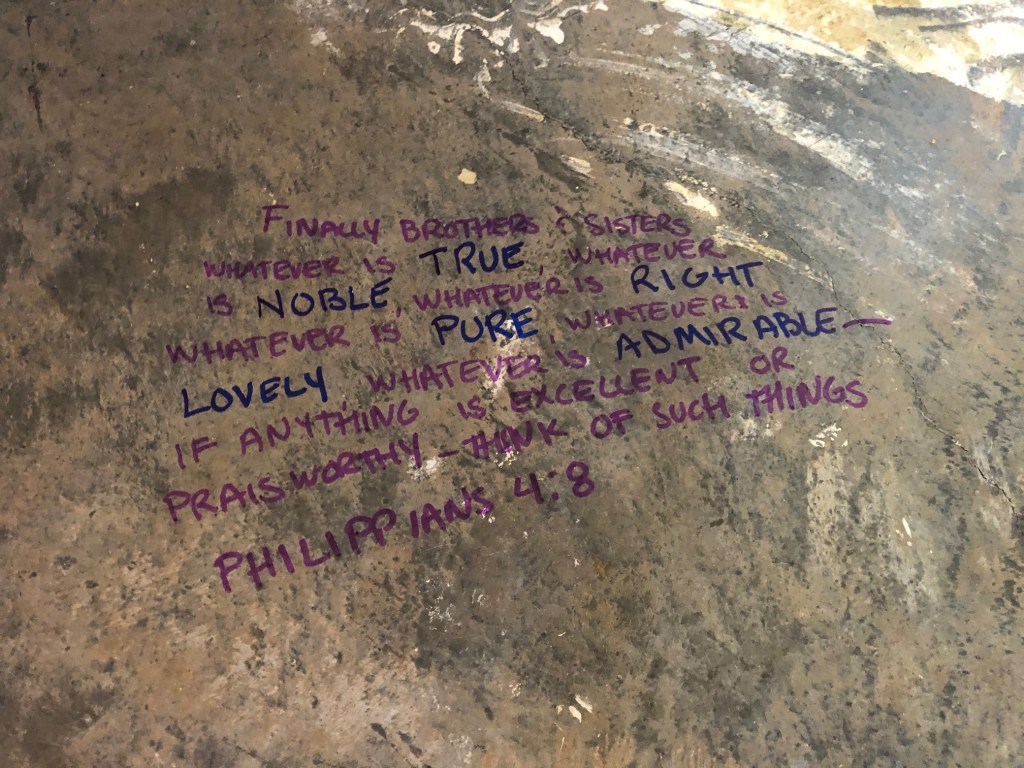 FINALLY BROTHERS & SISTERS
WHATEVER IS TRUE, WHATEVER
IS NOBLE, WHATEVER IS RIGHT
WHATEVER IS PURE, WHATEVER IS
LOVELY, WHATEVER IS ADMIRABLE—
IF ANYTHING IS EXCELLENT OR
PRAISWORTHY - THINK OF SUCH THINGS
PHILIPPIANS 4:8